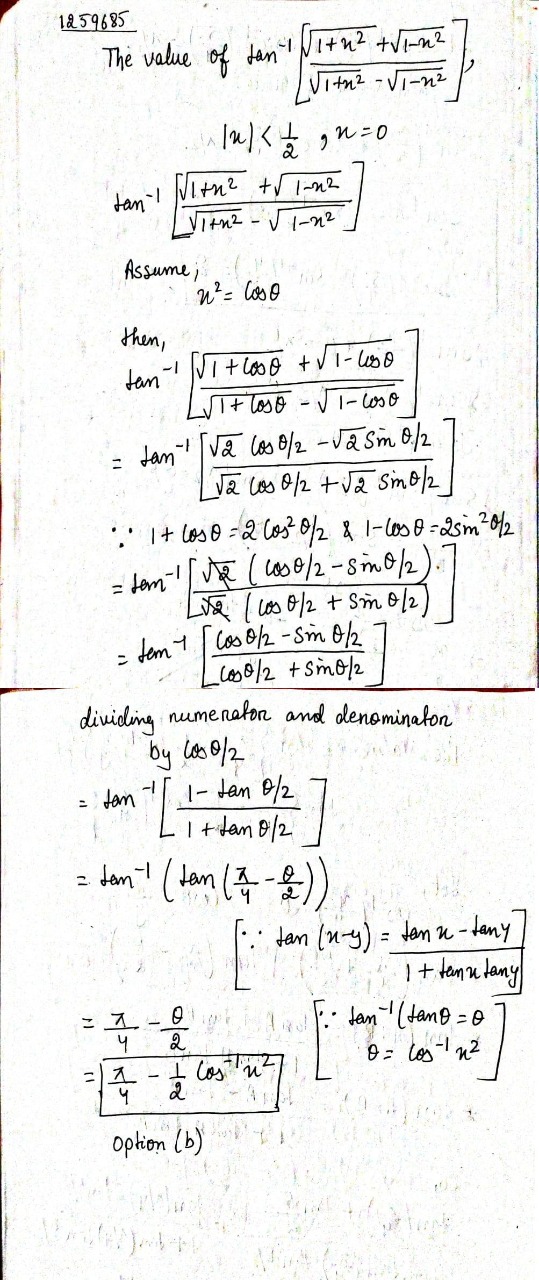 1259685
The value of tan⁻¹ [ (√(1+x²) + √(1-x²)) / (√(1+x²) - √(1-x²)) ],
|x| < 1/2 , x = 0
tan⁻¹ [ (√(1+x²) + √(1-x²)) / (√(1+x²) - √(1-x²)) ]
Assume,
x² = Cosθ
then,
tan⁻¹ [ (√(1+Cosθ) + √(1-Cosθ)) / (√(1+Cosθ) - √(1-Cosθ)) ]
= tan⁻¹ [ (√2 Cos θ/2 - √2 Sin θ/2) / (√2 Cos θ/2 + √2 Sin θ/2) ]
∵ 1 + Cosθ = 2 Cos² θ/2 & 1-Cosθ = 2sin² θ/2
= tan⁻¹ [ √2 (Cos θ/2 - Sin θ/2) / √2 (Cos θ/2 + Sin θ/2) ]
= tan⁻¹ [ (Cos θ/2 - Sin θ/2) / (Cos θ/2 + Sin θ/2) ]
dividing numerator and denominator
by Cos θ/2
= tan⁻¹ [ (1 - tan θ/2) / (1 + tan θ/2) ]
= tan⁻¹ (tan (π/4 - θ/2))
[∵ tan (x-y) = (tan x - tan y) / (1 + tan x tan y)]
= π/4 - θ/2 [∵ tan⁻¹(tanθ = θ
= π/4 - 1/2 Cos⁻¹ x² θ = Cos⁻¹ x²]
option (b)